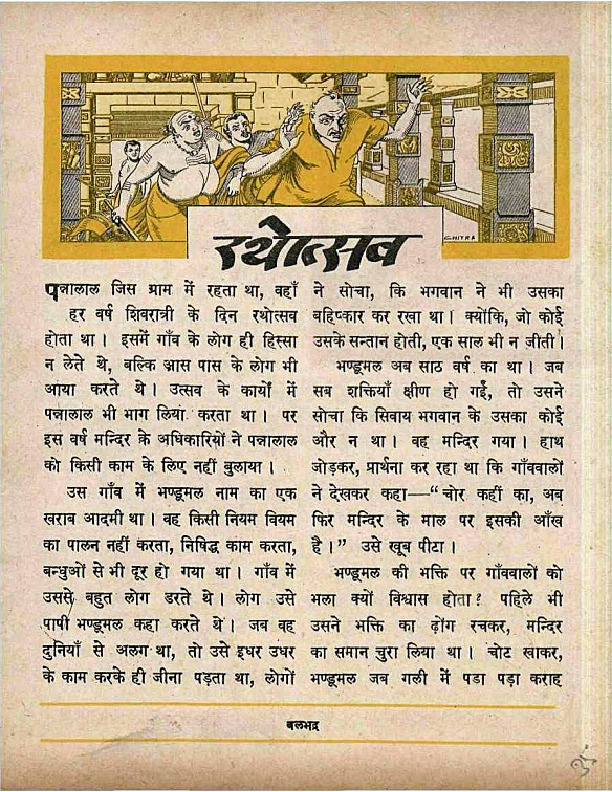 CHITRA
रथोत्सव
पन्नालाल जिस ग्राम में रहता था, वहाँ
हर वर्ष शिवरात्री के दिन रथोत्सव
होता था। इसमें गाँव के लोग ही हिस्सा
न लेते थे, बल्कि आस पास के लोग भी
आया करते थे। उत्सव के कार्यो में
पन्नालाल भी भाग लिया करता था। पर
इस वर्ष मन्दिर के अधिकारियों ने पन्नालाल
को किसी काम के लिए नहीं बुलाया।
उस गाँव में भण्डूमल नाम का एक
खराब आदमी था। वह किसी नियम वियम
का पालन नहीं करता, निषिद्ध काम करता,
बन्धुओं से भी दूर हो गया था। गाँव में
उससे बहुत लोग डरते थे। लोग उसे
पापी भण्डूमल कहा करते थे। जब वह
दुनियाँ से अलग था, तो उसे इधर उधर
के काम करके ही जीना पड़ता था, लोगों
ने सोचा, कि भगवान ने भी उसका
बहिष्कार कर रखा था। क्योंकि, जो कोई
उसके सन्तान होती, एक साल भी न जीती।
भण्डूमल अब साठ वर्ष का था। जब
सब शक्तियाँ क्षीण हो गईं, तो उसने
सोचा कि सिवाय भगवान के उसका कोई
और न था। वह मन्दिर गया। हाथ
जोड़कर, प्रार्थना कर रहा था कि गाँववालों
ने देखकर कहा—"चोर कहीं का, अब
फिर मन्दिर के माल पर इसकी आँख
है।" उसे खूब पीटा।
भण्डूमल की भक्ति पर गाँववालों को
भला क्यों विश्वास होता? पहिले भी
उसने भक्ति का ढ़ोंग रचकर, मन्दिर
का समान चुरा लिया था। चोट खाकर,
भण्डूमल जब गली में पडा पड़ा कराह
बलभद्र